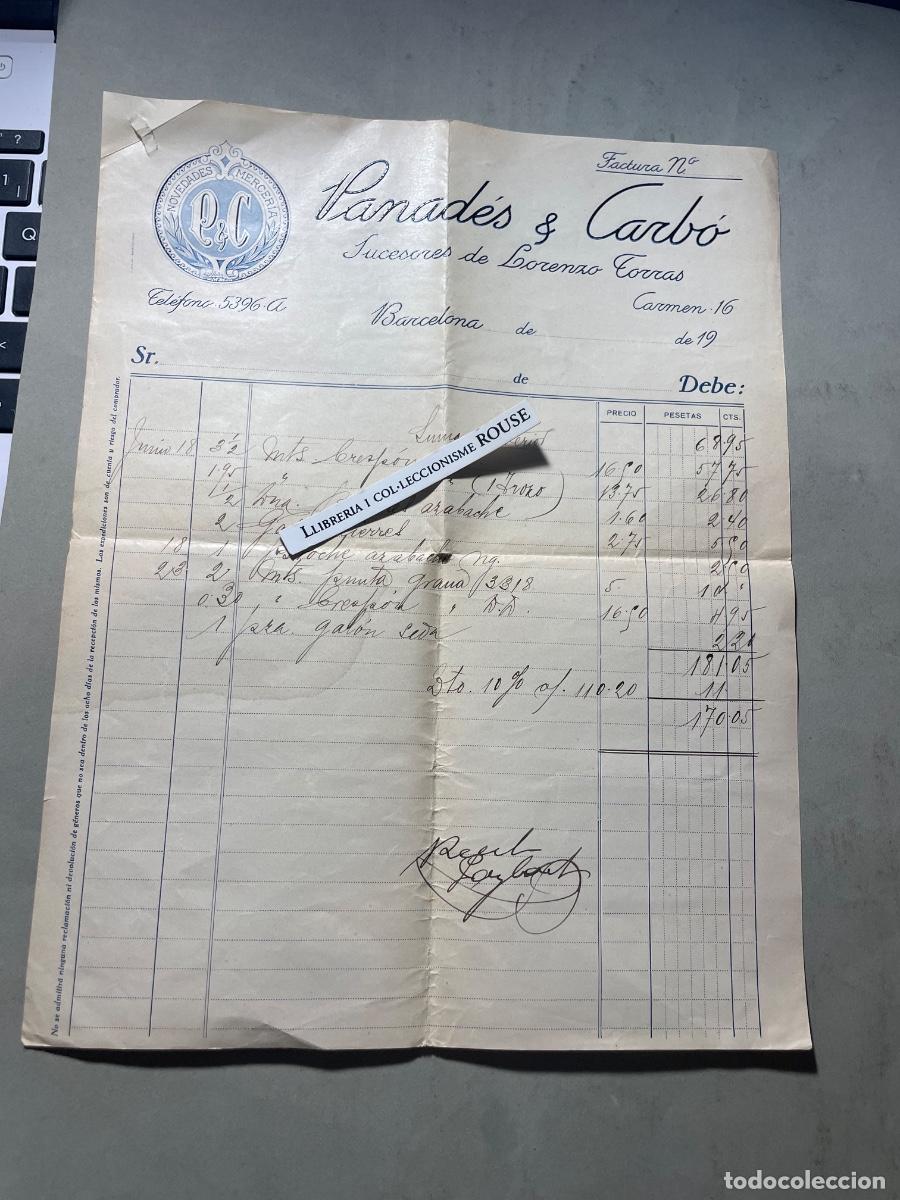 Factura Nº
NOVEDADES MERCERIA
P&C
Panadés & Carbó
Sucesores de Lorenzo Torras
Teléfono 5396-A
Carmen 16
Barcelona de de 19
Sr. de Debe:
PRECIO PESETAS CTS.
Suma 68 95
Junio 18 3½ Mts. Crespón 16'50 57 75
1'95 " " (1 trozo) 13'75 26 80
1½ Dna. azabache 1.60 2 40
2 2.75 5 50
18 1 azabache ng. 2 50
23 2 Mts. grana 3318 5. 10 "
0.30 " Crespón " D.D 16'50 4 95
1 pza. galón seda 2 20
181.05
Dto. 10% s/. 110.20 11
170.05
LLIBRERIA I COL·LECCIONISME ROUSE
No se admitirá ninguna reclamación ni devolución de géneros que no sea dentro de los ocho días de la recepción de los mismos. Las expediciones son de cuenta y riesgo del comprador.
todocoleccion